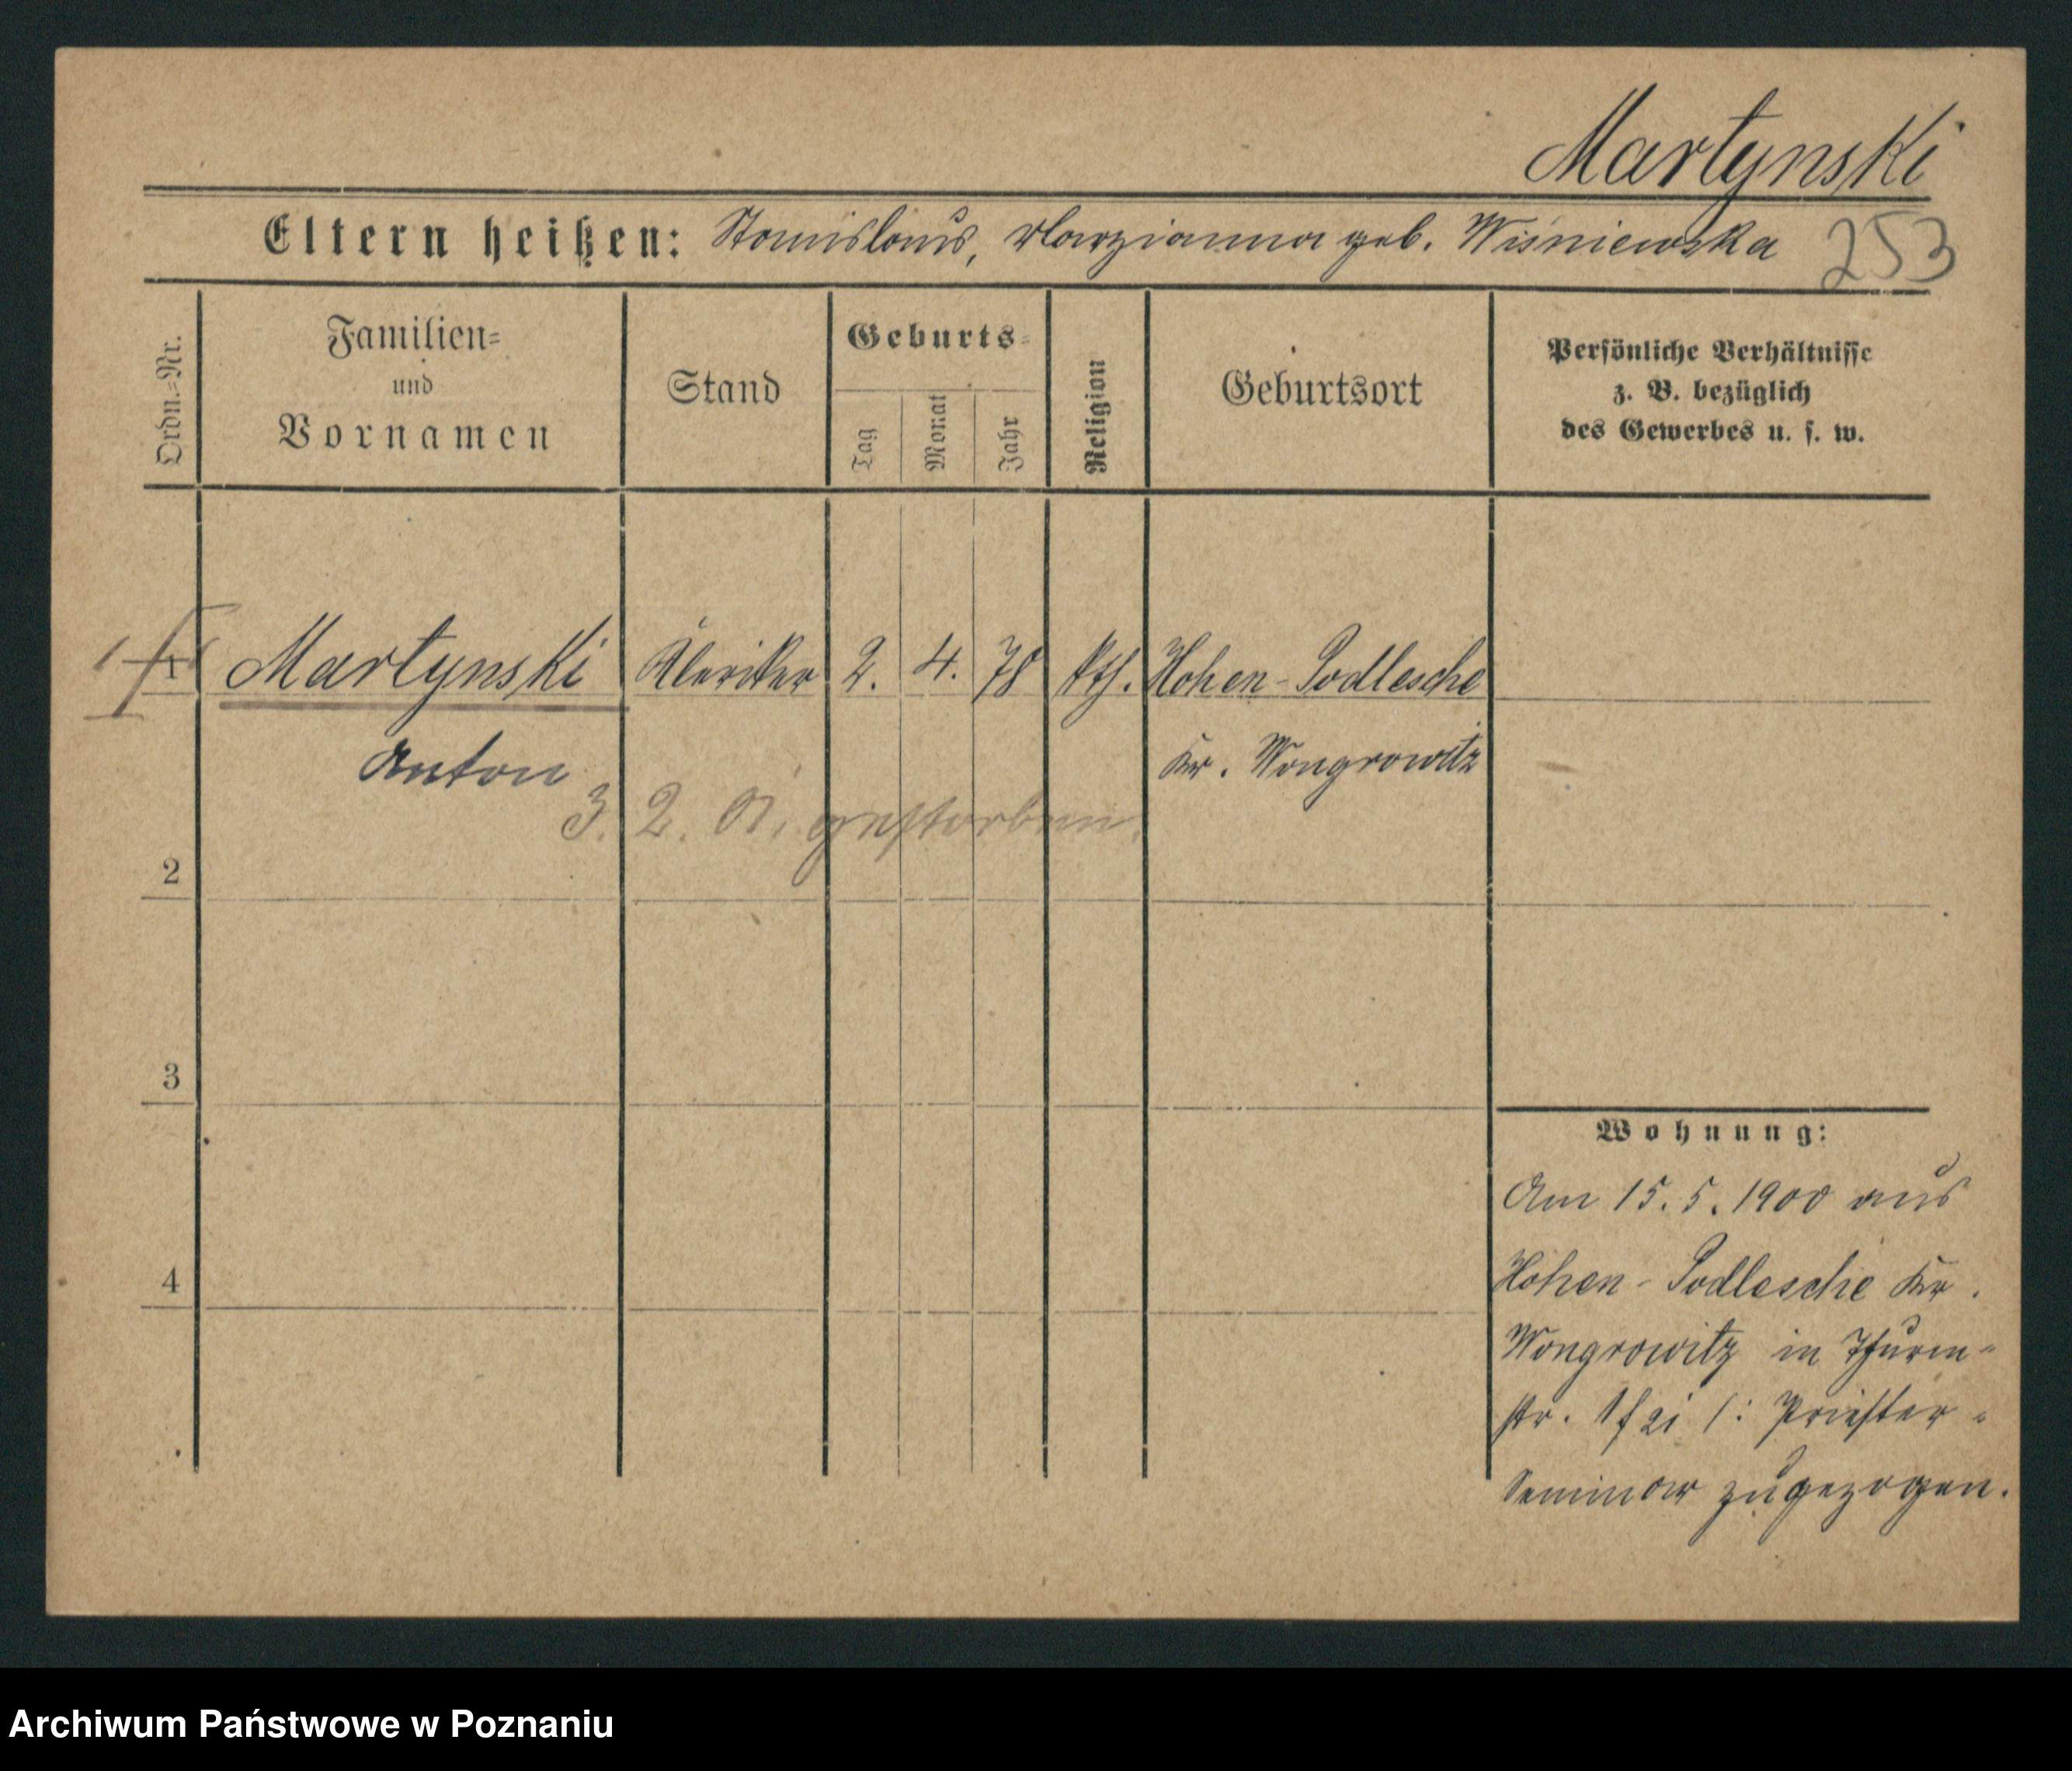 Martynski
Eltern heißen: Stanislaus, Marzianna geb. Wiśniewska 253
Ordn.=Nr.
Familien=
und
Vornamen
Stand
Geburts=
Tag
Monat
Jahr
Religion
Geburtsort
Persönliche Verhältnisse
z. B. bezüglich
des Gewerbes u. s. w.
1 Martynski Kleriker 2. 4. 78 kth. Hohen-Podlesche
Anton Kr. Wongrowitz
3. 2. 01. gestorben.
2
3
4
Wohnung:
Am 15. 5. 1900 aus
Hohen-Podlesche Kr.
Wongrowitz in Thurm-
str. /: Priester-
Seminar zugezogen.
Archiwum Państwowe w Poznaniu